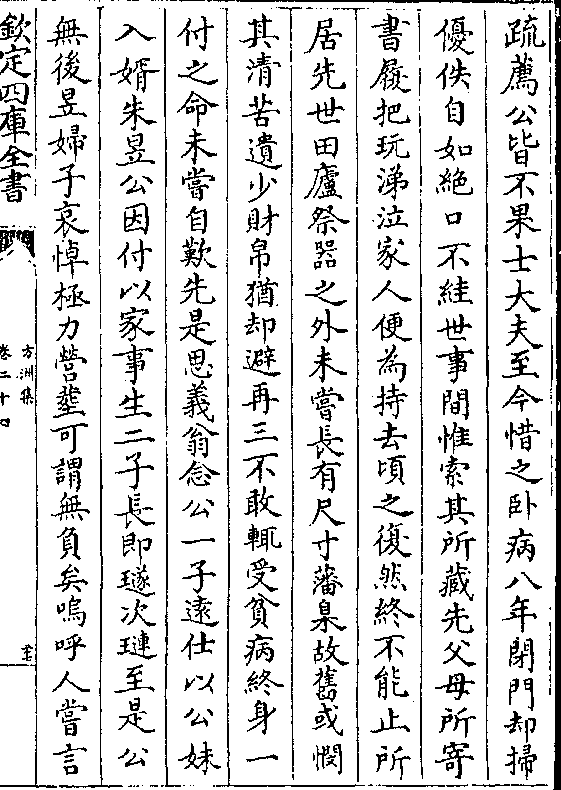 疏薦公皆不果士大夫至今惜之卧病八年閉門却掃
優佚自如絶口不絓世事間惟索其所藏先父母所寄
書履把玩涕泣家人便為持去頃之復然終不能止所
居先世田廬祭器之外未嘗長有尺寸藩臬故舊或憫
其清苦遺少財帛猶却避再三不敢輒受貧病終身一
付之命未嘗自歎先是思義翁念公一子遠仕以公妹
入婿朱昱公因付以家事生二子長即璲次璉至是公
無後昱婦子哀悼極力營塟可謂無負矣嗚呼人嘗言
欽定四庫全書
方洲集
卷二十